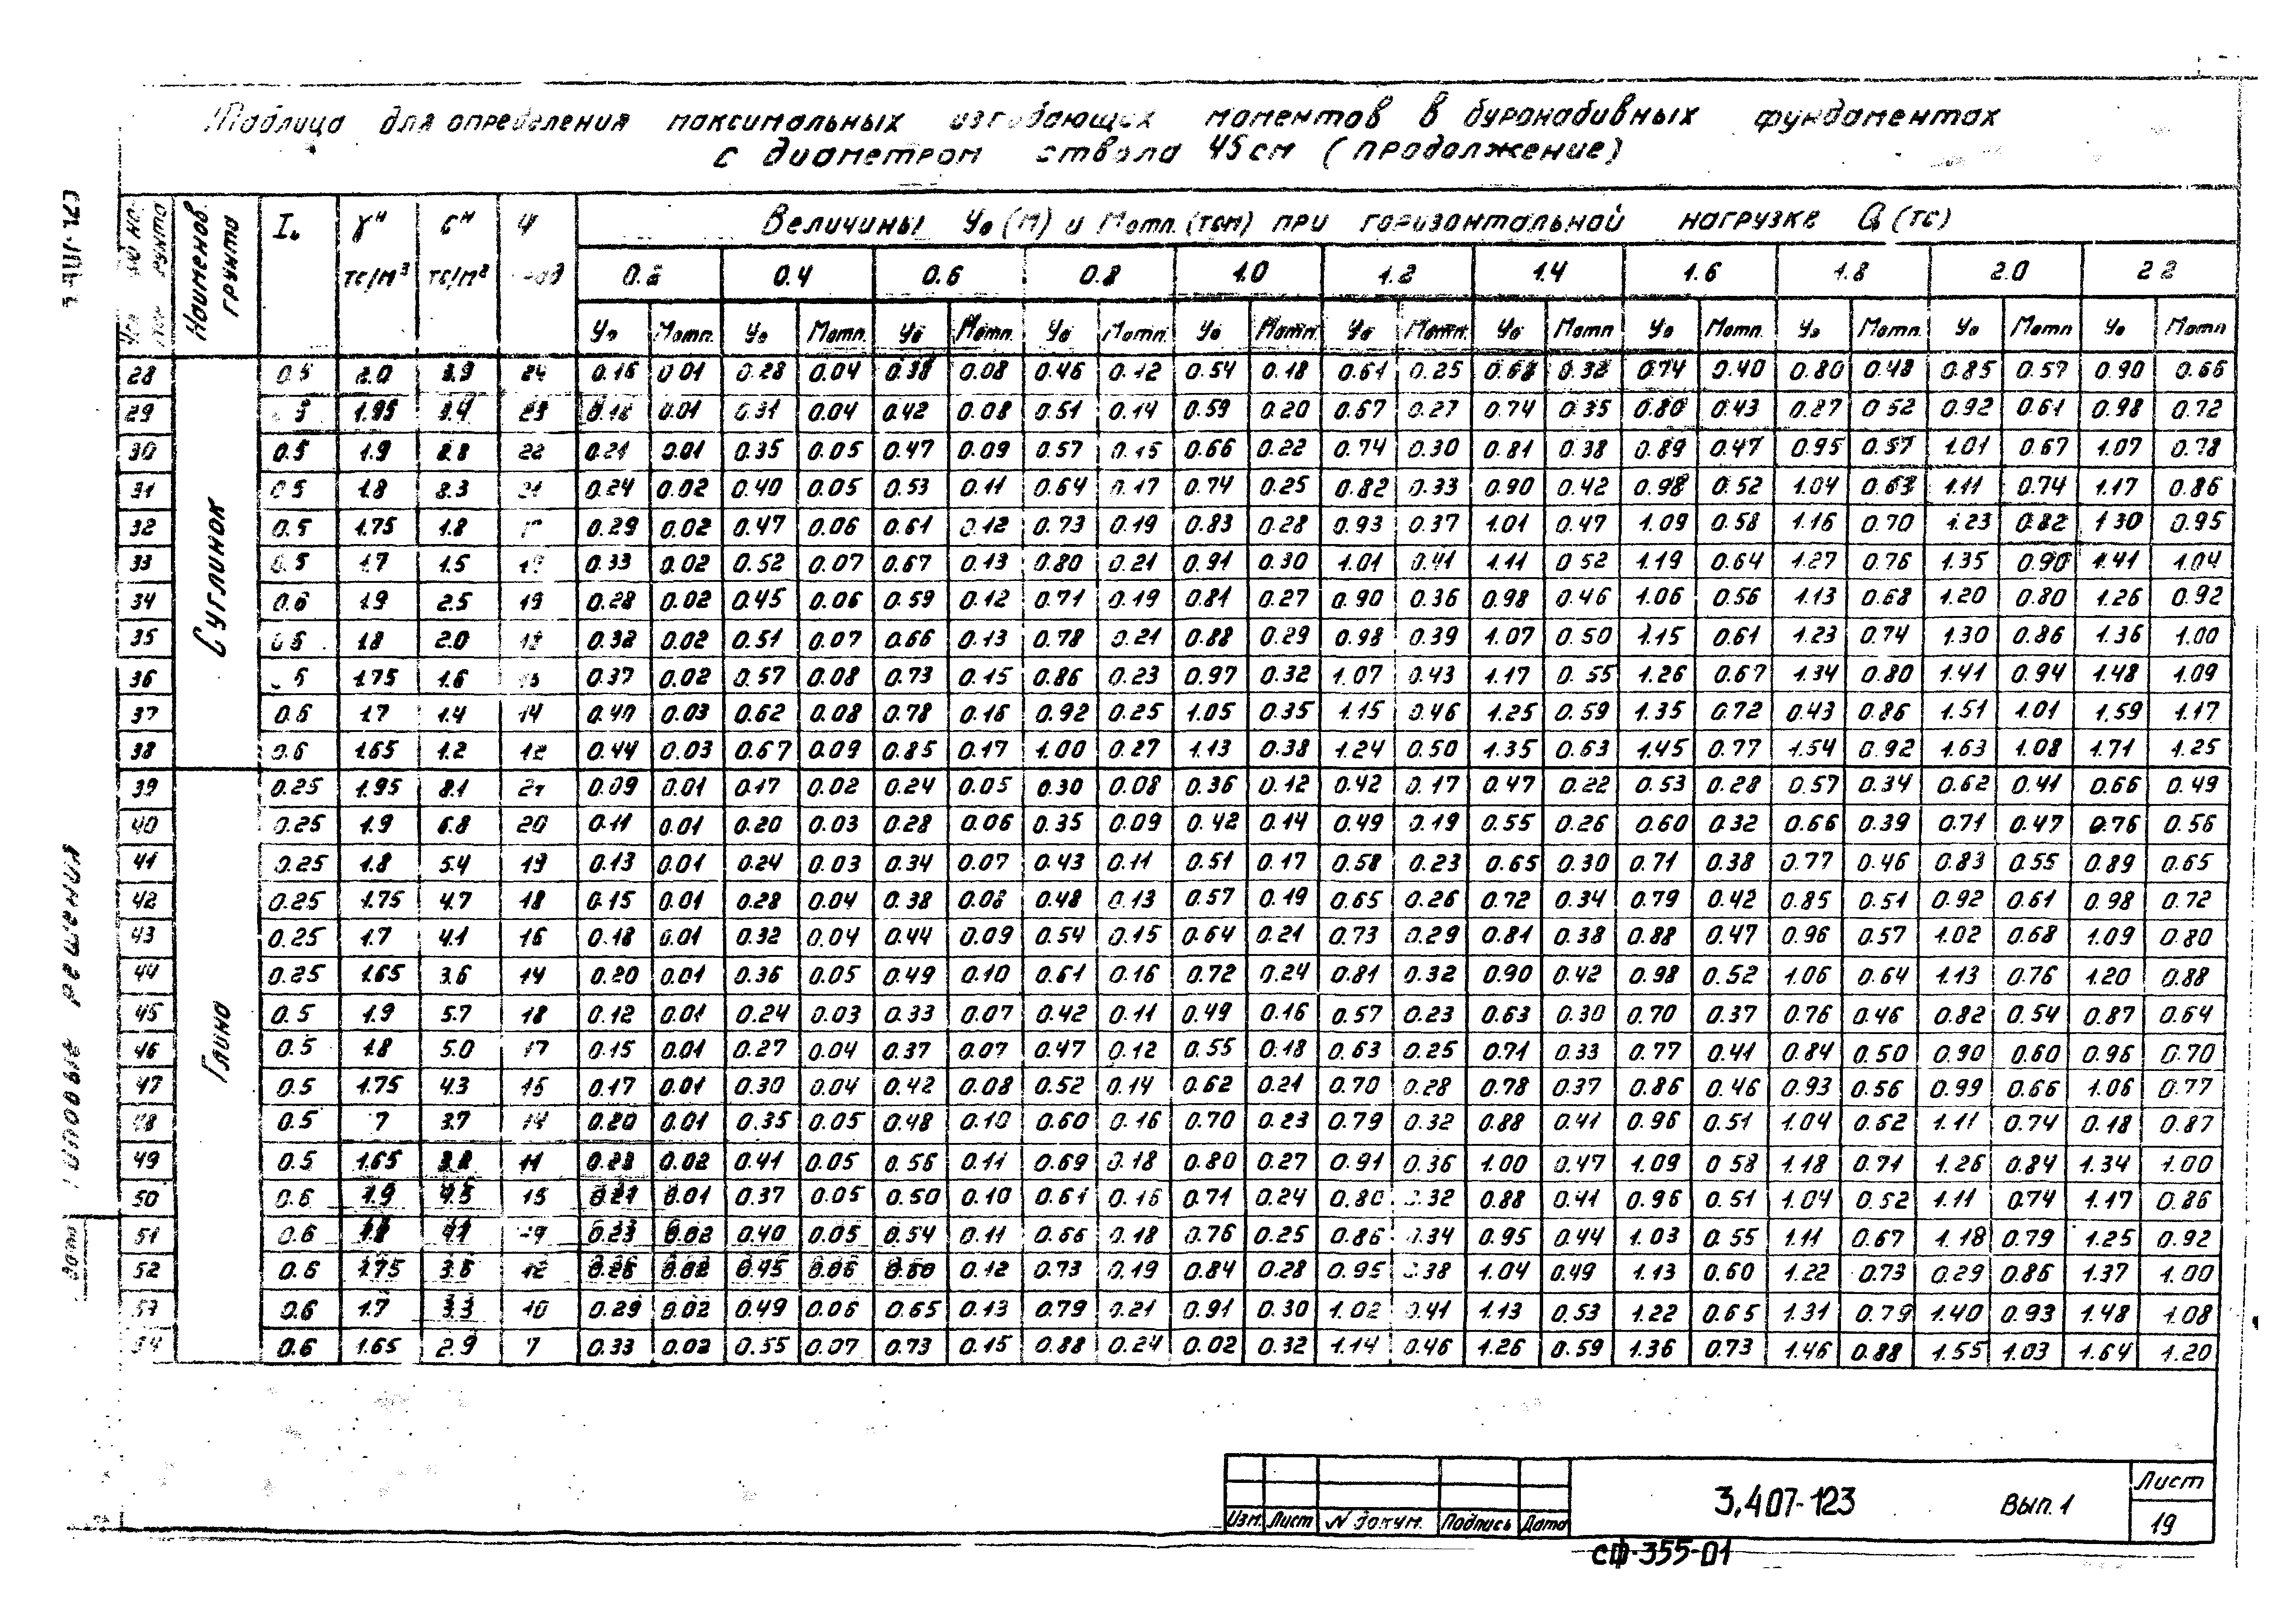 Таблица для определения максимальных изгибающих моментов в буронабивных фундаментах
с диаметром ствола 45см (продолжение)
Наименов. грунта
I
γн тс/м³
Cн тс/м²
Величины Уо (м) и Мотп. (тсм) при горизонтальной нагрузке Q (тс)
0.2 0.4 0.6 0.8 1.0 1.2 1.4 1.6 1.8 2.0 2.2
Уо Мотп. Уо Мотп. Уо Мотп. Уо Мотп. Уо Мотп. Уо Мотп. Уо Мотп Уо Мотп. Уо Мотп. Уо Мотп Уо Мотп
Суглинок
28 0.5 2.0 3.9 24 0.16 0.01 0.28 0.04 0.38 0.08 0.46 0.12 0.54 0.18 0.61 0.25 0.68 0.32 0.74 0.40 0.80 0.48 0.85 0.57 0.90 0.66
29 5 1.95 3.4 23 0.18 0.01 0.31 0.04 0.42 0.08 0.51 0.14 0.59 0.20 0.67 0.27 0.74 0.35 0.80 0.43 0.87 0.52 0.92 0.61 0.98 0.72
30 0.5 1.9 2.8 22 0.21 0.01 0.35 0.05 0.47 0.09 0.57 0.15 0.66 0.22 0.74 0.30 0.81 0.38 0.89 0.47 0.95 0.57 1.01 0.67 1.07 0.78
31 0.5 1.8 2.3 21 0.24 0.02 0.40 0.05 0.53 0.11 0.64 0.17 0.74 0.25 0.82 0.33 0.90 0.42 0.98 0.52 1.04 0.63 1.11 0.74 1.17 0.86
32 0.5 1.75 1.8 0.29 0.02 0.47 0.06 0.61 0.12 0.73 0.19 0.83 0.28 0.93 0.37 1.01 0.47 1.09 0.58 1.16 0.70 1.23 0.82 1.30 0.95
33 0.5 1.7 1.5 0.33 0.02 0.52 0.07 0.67 0.13 0.80 0.21 0.91 0.30 1.01 0.41 1.11 0.52 1.19 0.64 1.27 0.76 1.35 0.90 1.41 1.04
34 0.6 1.9 2.5 19 0.28 0.02 0.45 0.06 0.59 0.12 0.71 0.19 0.81 0.27 0.90 0.36 0.98 0.46 1.06 0.56 1.13 0.68 1.20 0.80 1.26 0.92
35 0.6 1.8 2.0 18 0.32 0.02 0.51 0.07 0.66 0.13 0.78 0.21 0.88 0.29 0.98 0.39 1.07 0.50 1.15 0.61 1.23 0.74 1.30 0.86 1.36 1.00
36 6 1.75 1.6 0.37 0.02 0.57 0.08 0.73 0.15 0.86 0.23 0.97 0.32 1.07 0.43 1.17 0.55 1.26 0.67 1.34 0.80 1.41 0.94 1.48 1.09
37 0.6 1.7 1.4 14 0.40 0.03 0.62 0.08 0.78 0.16 0.92 0.25 1.05 0.35 1.15 0.46 1.25 0.59 1.35 0.72 0.43 0.86 1.51 1.01 1.59 1.17
38 0.6 1.65 1.2 12 0.44 0.03 0.67 0.09 0.85 0.17 1.00 0.27 1.13 0.38 1.24 0.50 1.35 0.63 1.45 0.77 1.54 0.92 1.63 1.08 1.71 1.25
Глина
39 0.25 1.95 8.1 21 0.09 0.01 0.17 0.02 0.24 0.05 0.30 0.08 0.36 0.12 0.42 0.17 0.47 0.22 0.53 0.28 0.57 0.34 0.62 0.41 0.66 0.49
40 0.25 1.9 6.8 20 0.11 0.01 0.20 0.03 0.28 0.06 0.35 0.09 0.42 0.14 0.49 0.19 0.55 0.26 0.60 0.32 0.66 0.39 0.71 0.47 0.76 0.56
41 0.25 1.8 5.4 19 0.13 0.01 0.24 0.03 0.34 0.07 0.43 0.11 0.51 0.17 0.58 0.23 0.65 0.30 0.71 0.38 0.77 0.46 0.83 0.55 0.89 0.65
42 0.25 1.75 4.7 18 0.15 0.01 0.28 0.04 0.38 0.08 0.48 0.13 0.57 0.19 0.65 0.26 0.72 0.34 0.79 0.42 0.85 0.51 0.92 0.61 0.98 0.72
43 0.25 1.7 4.1 16 0.18 0.01 0.32 0.04 0.44 0.09 0.54 0.15 0.64 0.21 0.73 0.29 0.81 0.38 0.88 0.47 0.96 0.57 1.02 0.68 1.09 0.80
44 0.25 1.65 3.6 14 0.20 0.01 0.36 0.05 0.49 0.10 0.61 0.16 0.72 0.24 0.81 0.32 0.90 0.42 0.98 0.52 1.06 0.64 1.13 0.76 1.20 0.88
45 0.5 1.9 5.7 18 0.12 0.01 0.24 0.03 0.33 0.07 0.42 0.11 0.49 0.16 0.57 0.23 0.63 0.30 0.70 0.37 0.76 0.46 0.82 0.54 0.87 0.64
46 0.5 1.8 5.0 17 0.15 0.01 0.27 0.04 0.37 0.07 0.47 0.12 0.55 0.18 0.63 0.25 0.71 0.33 0.77 0.41 0.84 0.50 0.90 0.60 0.96 0.70
47 0.5 1.75 4.3 16 0.17 0.01 0.30 0.04 0.42 0.08 0.52 0.14 0.62 0.21 0.70 0.28 0.78 0.37 0.86 0.46 0.93 0.56 0.99 0.66 1.06 0.77
48 0.5 7 3.7 14 0.20 0.01 0.35 0.05 0.48 0.10 0.60 0.16 0.70 0.23 0.79 0.32 0.88 0.41 0.96 0.51 1.04 0.62 1.11 0.74 0.18 0.87
49 0.5 1.65 3.2 11 0.23 0.02 0.41 0.05 0.56 0.11 0.69 0.18 0.80 0.27 0.91 0.36 1.00 0.47 1.09 0.58 1.18 0.71 1.26 0.84 1.34 1.00
50 0.6 1.9 4.5 15 0.21 0.01 0.37 0.05 0.50 0.10 0.61 0.16 0.71 0.24 0.80 0.32 0.88 0.41 0.96 0.51 1.04 0.62 1.11 0.74 1.17 0.86
51 0.6 1.8 4.1 0.23 0.02 0.40 0.05 0.54 0.11 0.66 0.18 0.76 0.25 0.86 0.34 0.95 0.44 1.03 0.55 1.11 0.67 1.18 0.79 1.25 0.92
52 0.6 1.75 3.6 12 0.26 0.02 0.45 0.06 0.60 0.12 0.73 0.19 0.84 0.28 0.95 0.38 1.04 0.49 1.13 0.60 1.22 0.73 0.29 0.86 1.37 1.00
53 0.6 1.7 3.3 10 0.29 0.02 0.49 0.06 0.65 0.13 0.79 0.21 0.91 0.30 1.02 0.41 1.13 0.53 1.22 0.65 1.31 0.79 1.40 0.93 1.48 1.08
54 0.6 1.65 2.9 7 0.33 0.02 0.55 0.07 0.73 0.15 0.88 0.24 0.02 0.32 1.14 0.46 1.26 0.59 1.36 0.73 1.46 0.88 1.55 1.03 1.64 1.20
Изм. Лист N докум. Подпись Дата
3.407-123 Вып. 1
Лист
19
СФ-355-01